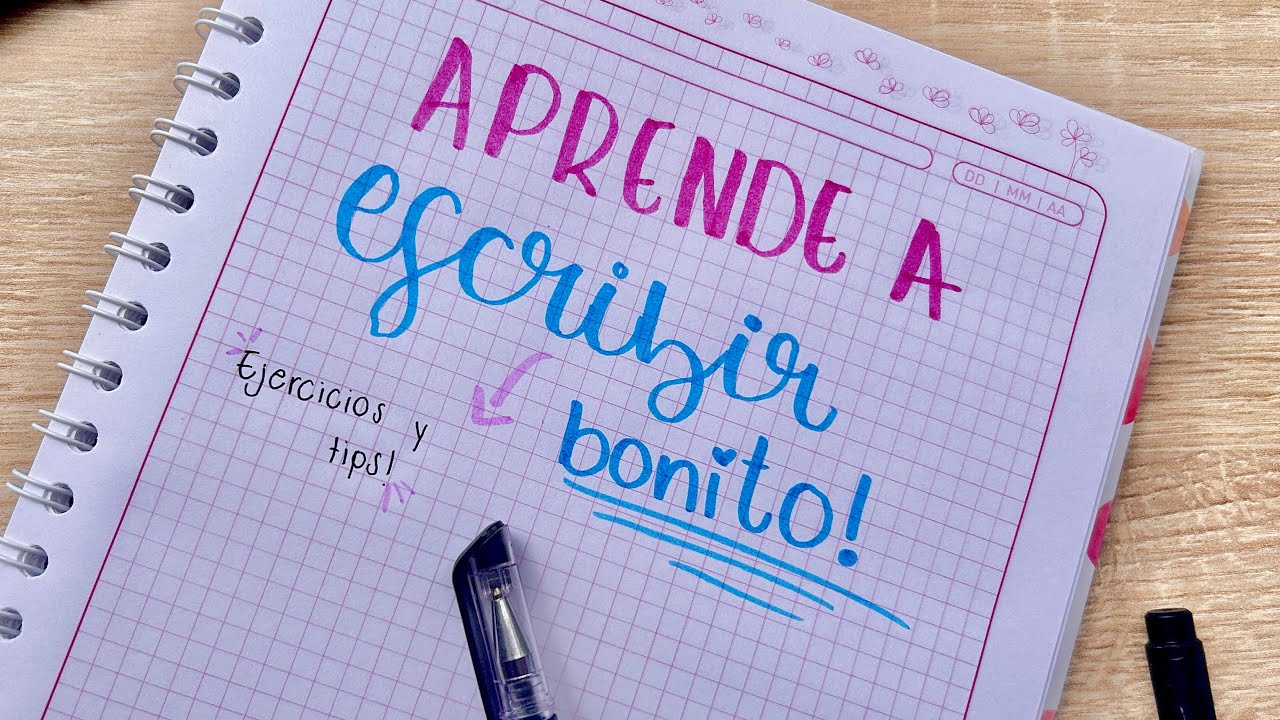 DD | MM | AA
APRENDE A
escribir
bonito!
Ejercicios y
tips!